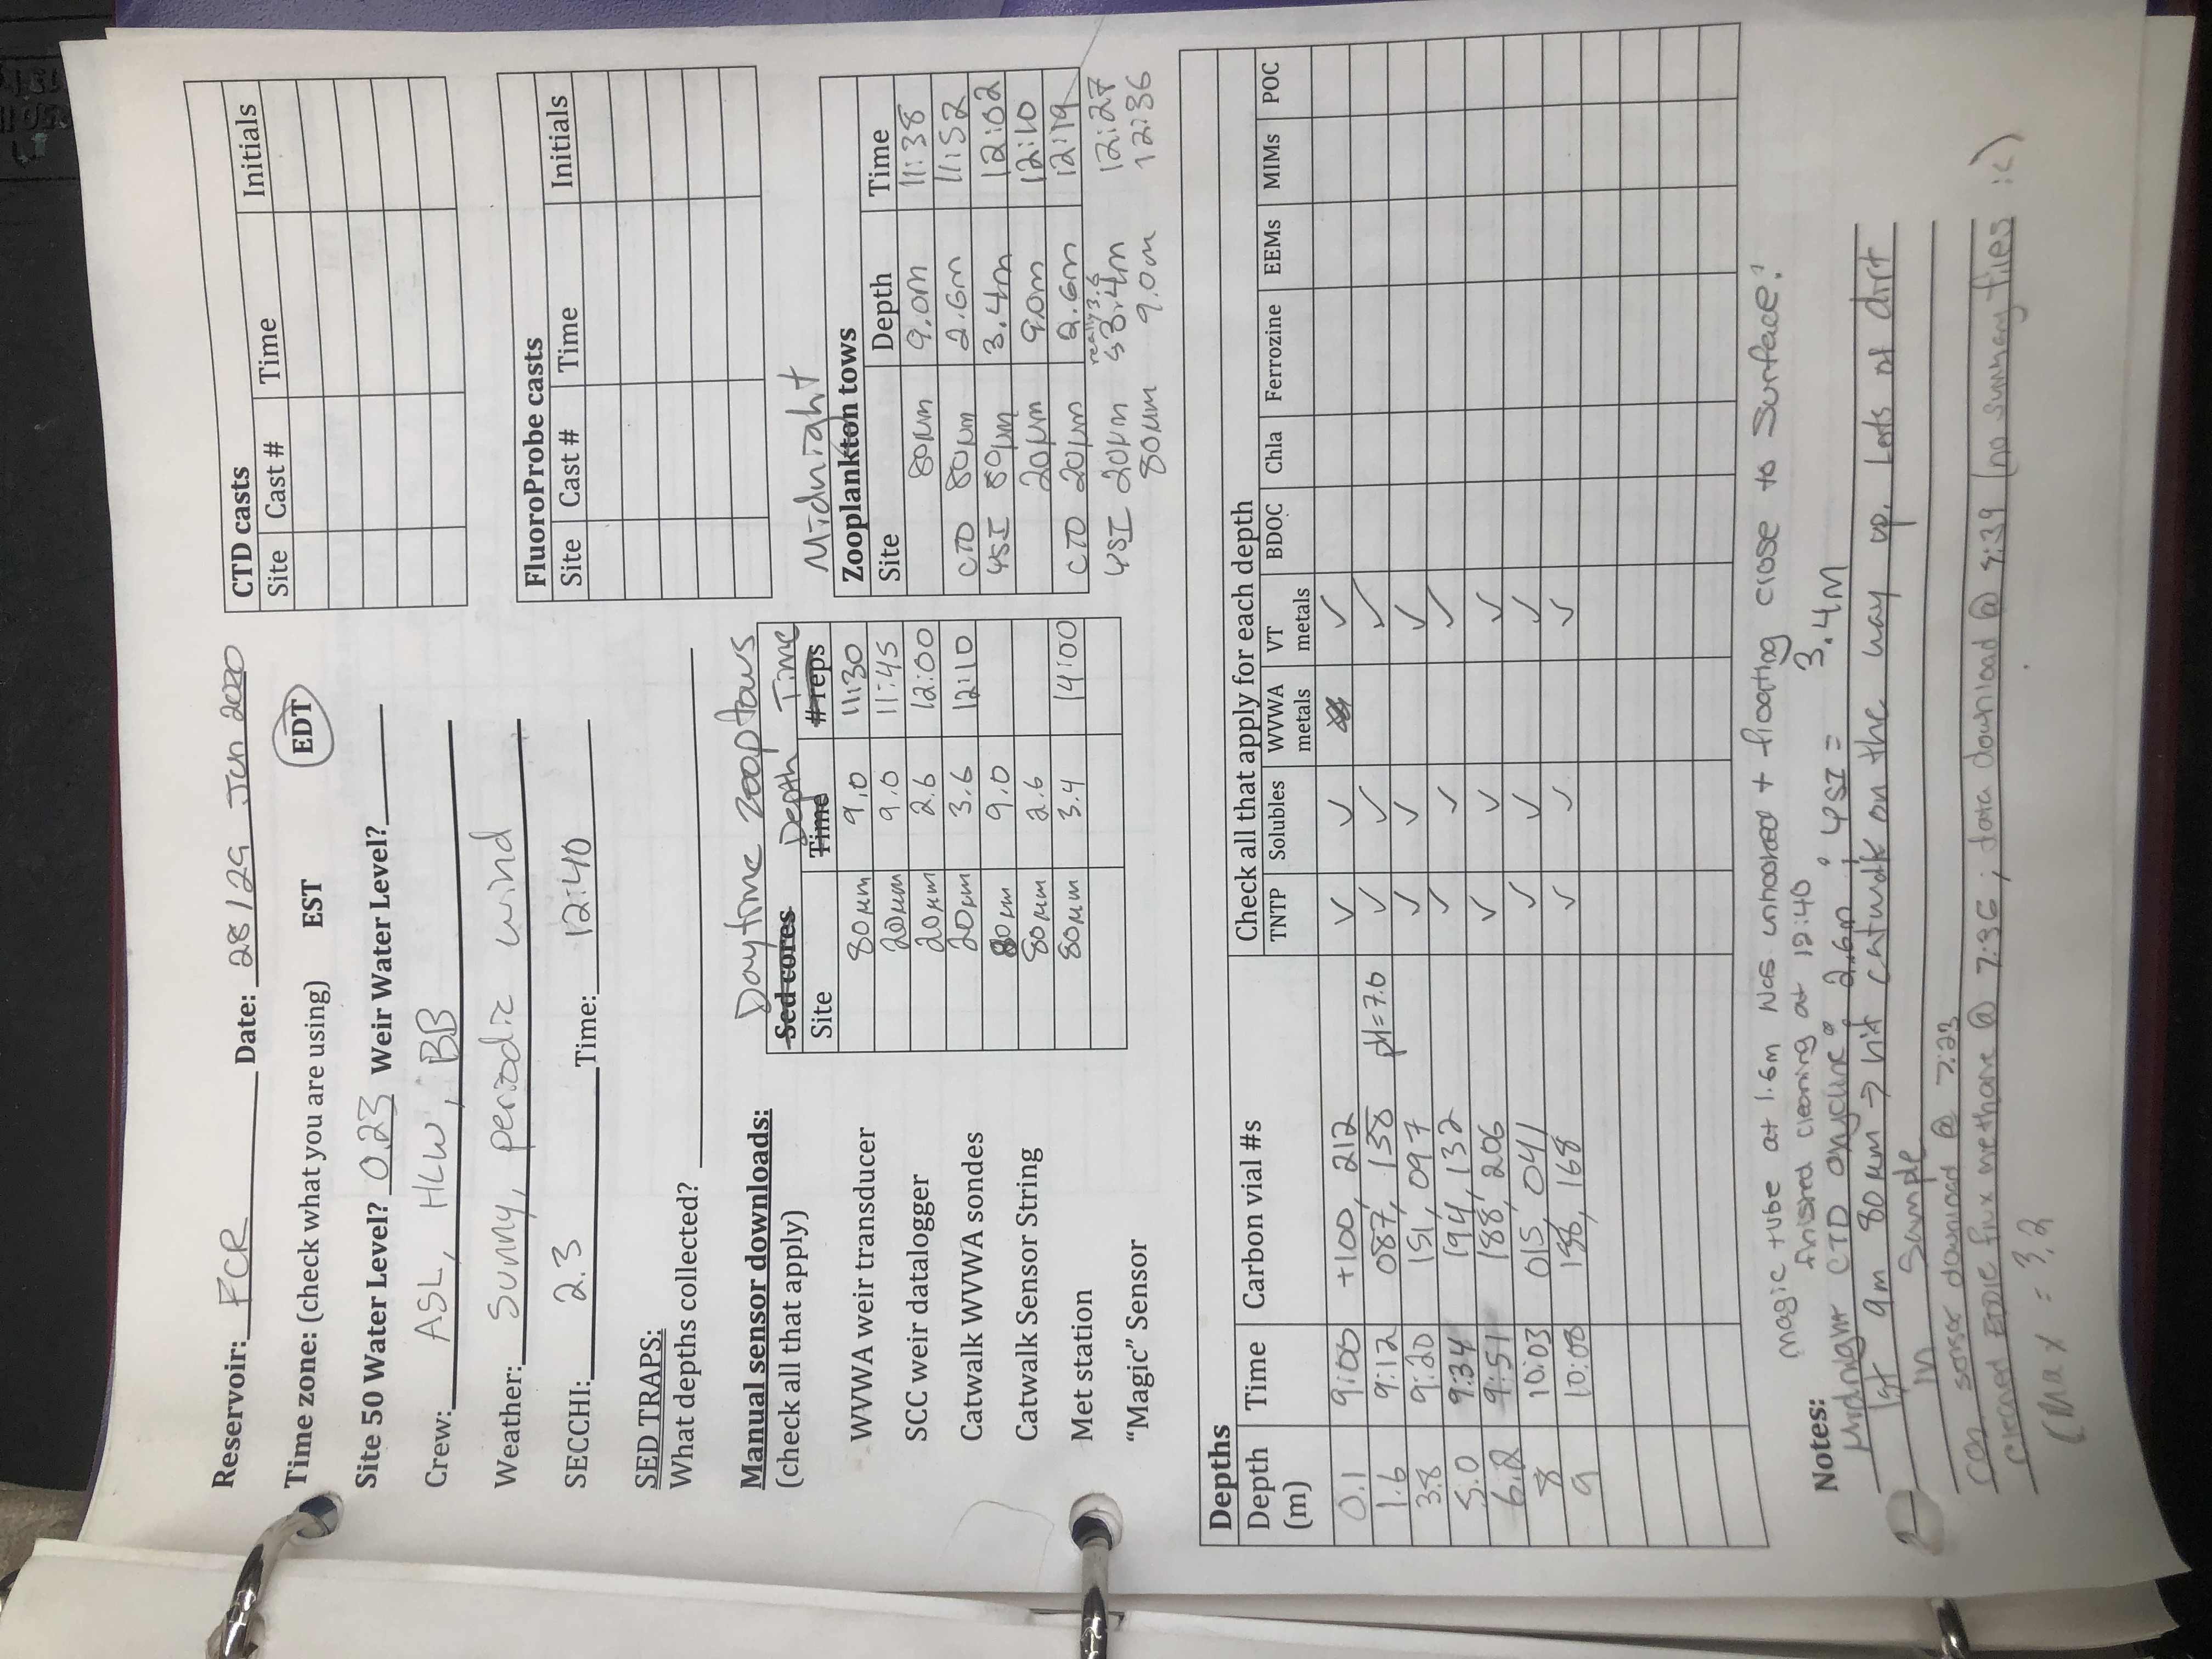 Reservoir: FCR Date: 28/29 Jun 2020
Time zone: (check what you are using) EST EDT
Site 50 Water Level? 0.23 Weir Water Level?
Crew: ASL, HLW, BB
Weather: Sunny, periodic wind
SECCHI: 2.3 Time: 12:40
SED TRAPS:
What depths collected?
CTD casts
Site Cast # Time Initials
FluoroProbe casts
Site Cast # Time Initials
Manual sensor downloads:
(check all that apply)
WVWA weir transducer
SCC weir datalogger
Catwalk WVWA sondes
Catwalk Sensor String
Met station
“Magic” Sensor
Daytime zoop tows
Sed cores Depth Time
Site Time # reps
80 µm 9.0 11:30
20 µm 9.0 11:45
20 µm 2.6 12:00
20 µm 3.6 12:10
80 µm 9.0
80 µm 2.6
80 µm 3.4 14:00
Midnight
Zooplankton tows
Site Depth Time
80µm 9.0m 11:38
CTD 80µm 2.6m 11:52
YSI 80µm 3.4m 12:02
20µm 9.0m 12:10
CTD 20µm 2.6m 12:19
really 3.6
YSI 20µm 3.4m 12:27
80µm 9.0m 12:36
Depths
Depth (m) Time Carbon vial #s Check all that apply for each depth
TNTP Solubles WVWA metals VT metals BDOC Chla Ferrozine EEMs MIMs POC
0.1 9:00 +100, 212 ✓ ✓ ✓
1.6 9:12 087, 138 pH=7.0 ✓ ✓ ✓
3.8 9:20 151, 097 ✓ ✓ ✓
5.0 9:34 194, 132 ✓ ✓ ✓
6.2 9:51 188, 206 ✓ ✓ ✓
8 10:03 015, 041 ✓ ✓ ✓
9 10:08 168 ✓ ✓ ✓
magic tube at 1.6m was unhooked + floating close to surface!
Notes: finished cleaning at 12:40
Midnight CTD oxycline: 2.6m ; YSI = 3.4m
1st 9m 80 µm → hit catwalk on the way up. Lots of dirt
in sample
sensor download @ 7:23
cleaned EDDIE flux methane @ 7:36 ; data download @ (no summary files :<)
CMax = 3.2